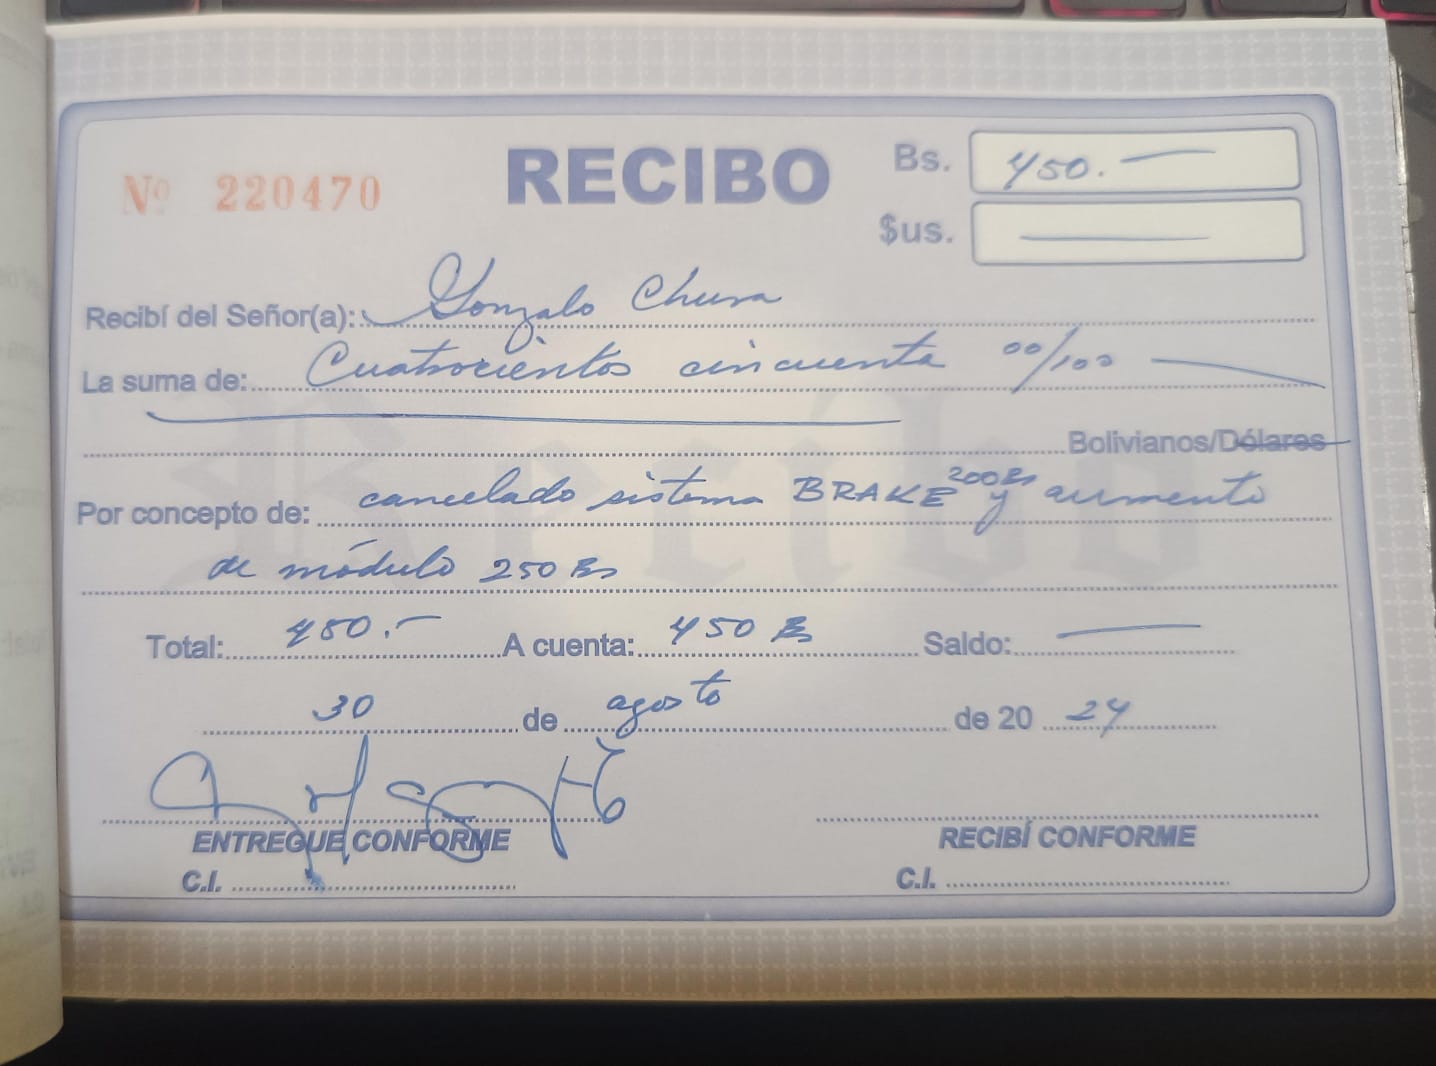 Nº 220470
RECIBO
Bs. 450.-
$us. -
Recibí del Señor(a): Gonzalo Chura
La suma de: Cuatrocientos cincuenta 00/100
Bolivianos/Dólares
Por concepto de: cancelado sistema BRAKE 200Bs y aumento
de módulo 250 Bs
Total: 450.- A cuenta: 450 Bs Saldo: -
30 de agosto de 20 24
ENTREGUE CONFORME RECIBÍ CONFORME
C.I. C.I.